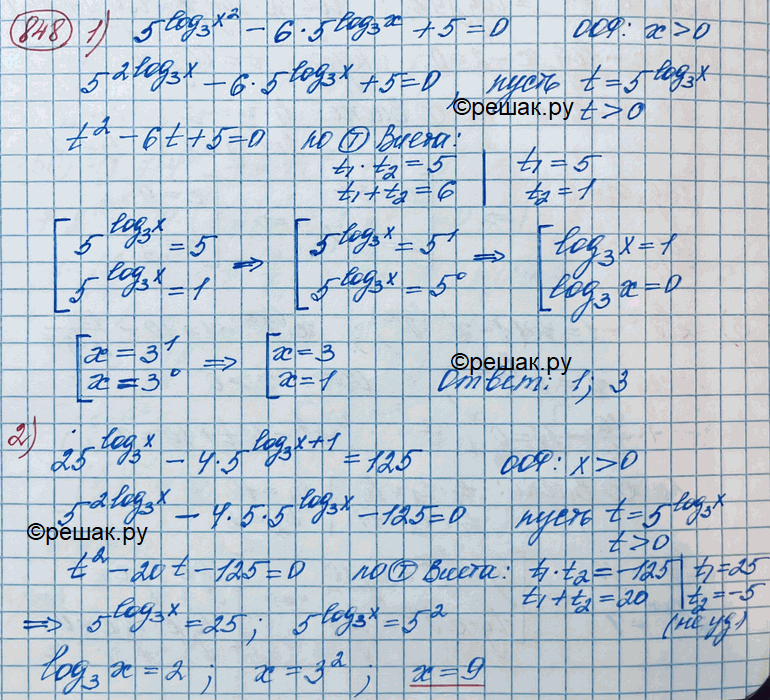 848 1) 5^{log₃x²} − 6·5^{log₃x} + 5 = 0 ООФ: x > 0
5^{2log₃x} − 6·5^{log₃x} + 5 = 0, пусть t = 5^{log₃x}
©решак.ру t > 0
t² − 6t + 5 = 0 по Ⓣ Виета:
t₁·t₂ = 5 | t₁ = 5
t₁ + t₂ = 6 | t₂ = 1
[ 5^{log₃x} = 5 ⇒ [ 5^{log₃x} = 5¹ ⇒ [ log₃x = 1
5^{log₃x} = 1 5^{log₃x} = 5⁰ log₃x = 0
[ x = 3¹ ⇒ [ x = 3 ©решак.ру
x = 3⁰ x = 1 Ответ: 1; 3
2) 25^{log₃x} − 4·5^{log₃x+1} = 125 ООФ: x > 0
5^{2log₃x} − 4·5·5^{log₃x} − 125 = 0 пусть t = 5^{log₃x}
©решак.ру t > 0
t² − 20t − 125 = 0 по Ⓣ Виета: t₁·t₂ = −125 | t₁ = 25
t₁ + t₂ = 20 | t₂ = −5
⇒ 5^{log₃x} = 25; 5^{log₃x} = 5² (не уд)
log₃x = 2; x = 3²; x = 9